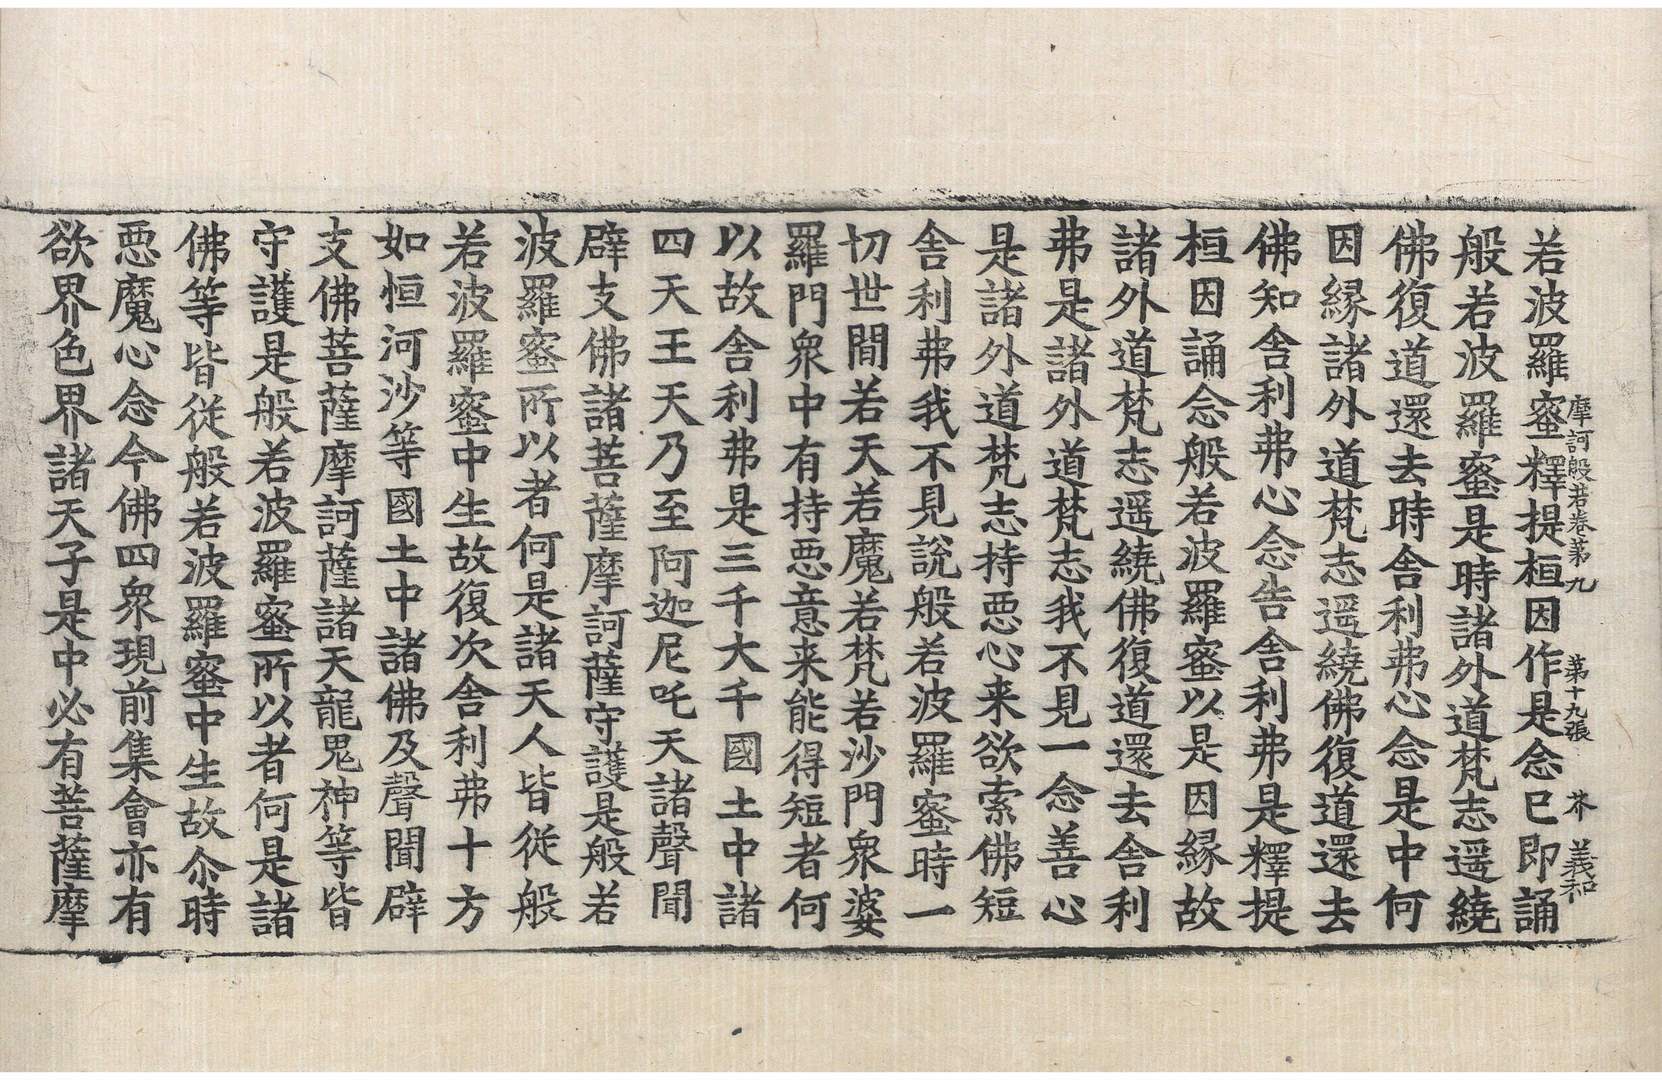 摩訶般若卷第九 第十九張 芥 義和
若波羅蜜釋提桓因作是念已即誦
般若波羅蜜是時諸外道梵志遥繞
佛復道還去時舍利弗心念是中何
因縁諸外道梵志遥繞佛復道還去
佛知舍利弗心念告舍利弗是釋提
桓因誦念般若波羅蜜以是因縁故
諸外道梵志遥繞佛復道還去舍利
弗是諸外道梵志我不見一念善心
是諸外道梵志持惡心来欲索佛短
舍利弗我不見說般若波羅蜜時一
切世間若天若魔若梵若沙門衆婆
羅門衆中有持惡意来能得短者何
以故舍利弗是三千大千國土中諸
四天王天乃至阿迦尼吒天諸聲聞
辟支佛諸菩薩摩訶薩守護是般若
波羅蜜所以者何是諸天人皆從般
若波羅蜜中生故復次舍利弗十方
如恒河沙等國土中諸佛及聲聞辟
支佛菩薩摩訶薩諸天龍鬼神等皆
守護是般若波羅蜜所以者何是諸
佛等皆從般若波羅蜜中生故尒時
惡魔心念今佛四衆現前集會亦有
欲界色界諸天子是中必有菩薩摩